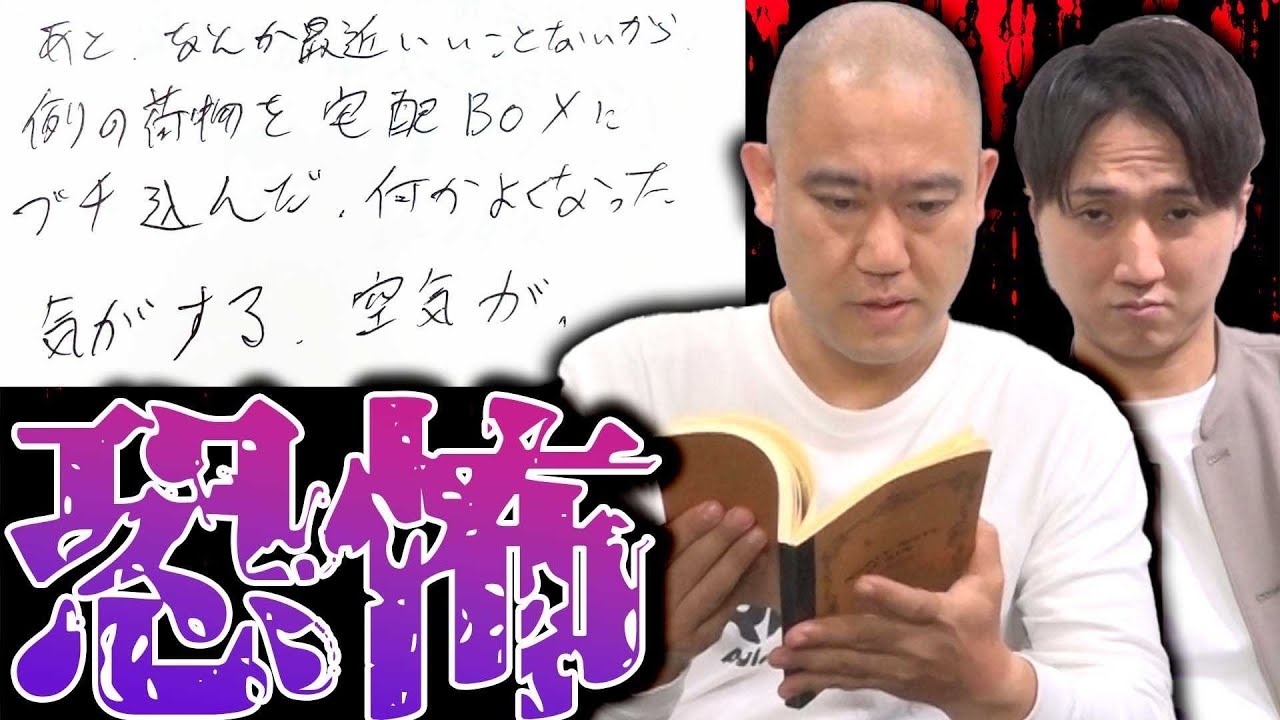 あと、なんか最近いいことないから、
例の荷物を宅配BOXに
ブチ込んだ、何かよくなった
気がする、空気が、
恐怖